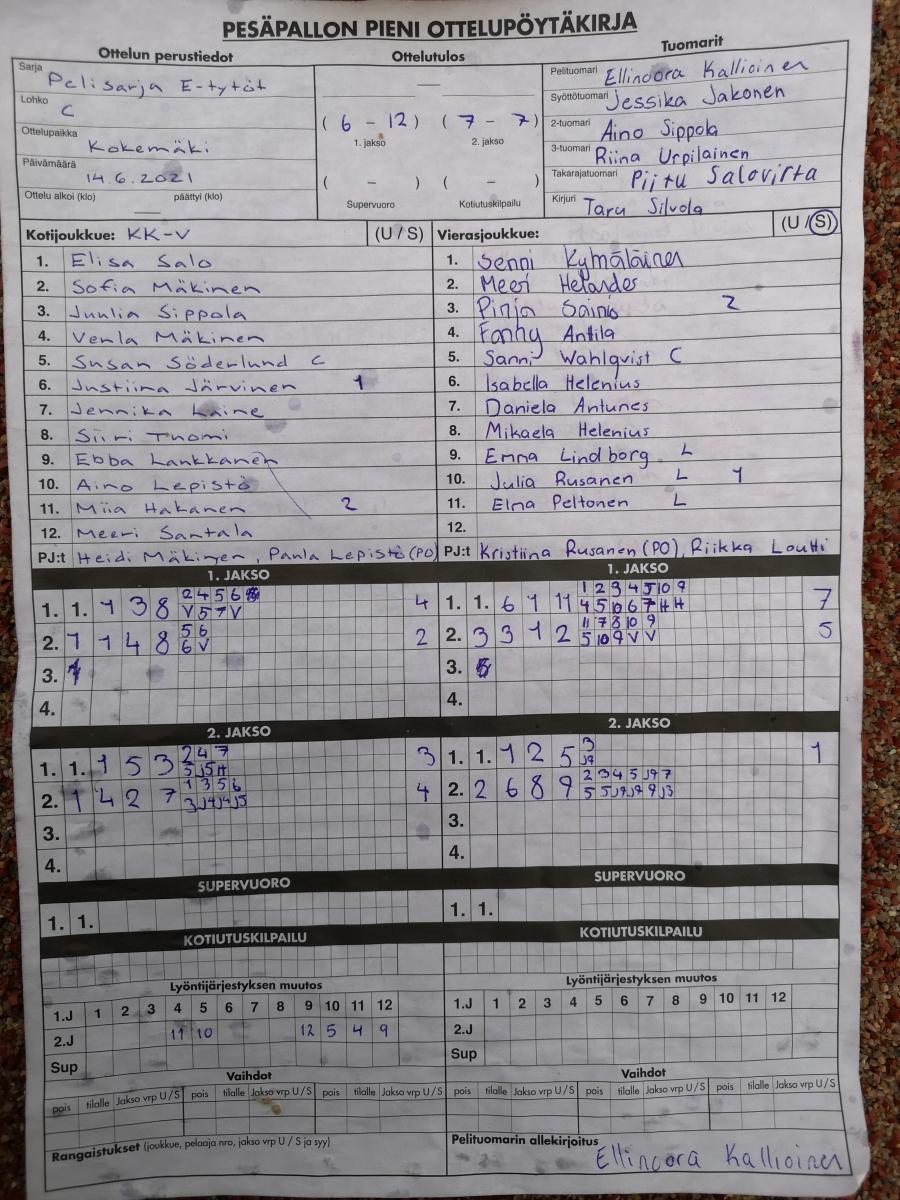 PESÄPALLON PIENI OTTELUPÖYTÄKIRJA
Ottelun perustiedot
Sarja Pelisarja E-tytöt
Lohko C
Ottelupaikka Kokemäki
Päivämäärä 14.6.2021
Ottelu alkoi (klo) — päättyi (klo)
Ottelutulos
—
( 6 - 12 ) ( 7 - 7 )
1. jakso 2. jakso
( - ) ( - )
Supervuoro Kotiutuskilpailu
Tuomarit
Pelituomari Ellinoora Kallioinen
Syöttötuomari Jessika Jakonen
2-tuomari Aino Sippola
3-tuomari Riina Urpilainen
Takarajatuomari Piitu Salovirta
Kirjuri Taru Silvola
Kotijoukkue: KK-V (U / S)
1. Elisa Salo
2. Sofia Mäkinen
3. Juulia Sippola
4. Venla Mäkinen
5. Susan Söderlund C
6. Justiina Järvinen 1
7. Jennika Laine
8. Siiri Tuomi
9. Ebba Lankkanen
10. Aino Lepistö
11. Miia Hakanen 2
12. Meeri Santala
PJ:t Heidi Mäkinen, Paula Lepistö (PO)
Vierasjoukkue: (U / S)
1. Senni Kymäläinen
2. Meeri Helander
3. Pinja Sainio 2
4. Fanny Antila
5. Sanni Wahlqvist C
6. Isabella Helenius
7. Daniela Antunes
8. Mikaela Helenius
9. Emma Lindborg L
10. Julia Rusanen L 1
11. Elna Peltonen L
12.
PJ:t Kristiina Rusanen (PO), Riikka Loutti
1. JAKSO
2 4 5 6
1. 1. 1 3 8 V 5 7 V 4
5 6
2. 1 1 4 8 6 V 2
3.
4.
1. JAKSO
1 2 3 4 5 10 9
1. 1. 6 1 11 4 5 10 6 7 H H 7
11 7 8 10 9
2. 3 3 1 2 5 10 9 V V 5
3.
4.
2. JAKSO
2 4 7
1. 1. 1 5 3 5 J5 H 3
1 3 5 6
2. 1 4 2 7 3 J4 J4 J5 4
3.
4.
2. JAKSO
3
1. 1. 1 2 5 J9 1
2 3 4 5 J9 7
2. 2 6 8 9 5 5 J9 J9 9 J3
3.
4.
SUPERVUORO
1. 1.
SUPERVUORO
1. 1.
KOTIUTUSKILPAILU
KOTIUTUSKILPAILU
Lyöntijärjestyksen muutos
1.J 1 2 3 4 5 6 7 8 9 10 11 12
2.J 11 10 12 5 4 9
Sup
Lyöntijärjestyksen muutos
1.J 1 2 3 4 5 6 7 8 9 10 11 12
2.J
Sup
Vaihdot
pois tilalle Jakso vrp U / S pois tilalle Jakso vrp U / S pois tilalle Jakso vrp U / S
Vaihdot
pois tilalle Jakso vrp U / S pois tilalle Jakso vrp U / S pois tilalle Jakso vrp U / S
Rangaistukset (joukkue, pelaaja nro, jakso vrp U / S ja syy)
Pelituomarin allekirjoitus
Ellinoora Kallioinen